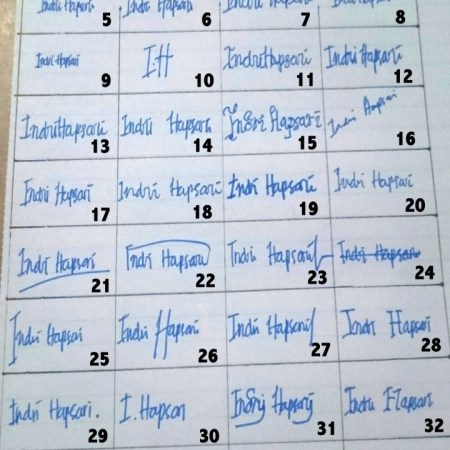 Indri Hapsari Indri Hapsari Indri Hapsari Indri Hapsari
5 6 7 8
Indri Hapsari IH IndriHapsari Indri Hapsari
9 10 11 12
IndriHapsari Indri Hapsari Indri Hapsari Indri Hapsari
13 14 15 16
Indri Hapsari Indri Hapsari Indri Hapsari Indri Hapsari
17 18 19 20
Indri Hapsari Indri Hapsari Indri Hapsari Indri Hapsari
21 22 23 24
Indri Hapsari Indri Hapsari Indri Hapsari Indri Hapsari
25 26 27 28
Indri Hapsari. I. Hapsari Indri Hapsari Indri Hapsari
29 30 31 32